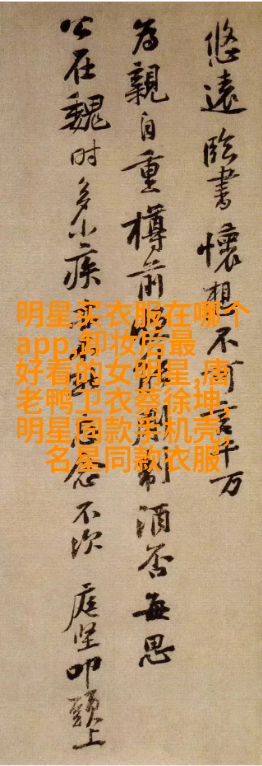 悠遠臨書懷想不可言千万
為親自重樽前能剸制酒否每思
公在魏时多小疾忘念不次 庭坚叩頭上
明星买衣服在哪个
app,卸妆后最
好看的女明星,唐
老鸭卫衣蔡徐坤,
明星同款手机壳,
名星同款衣服